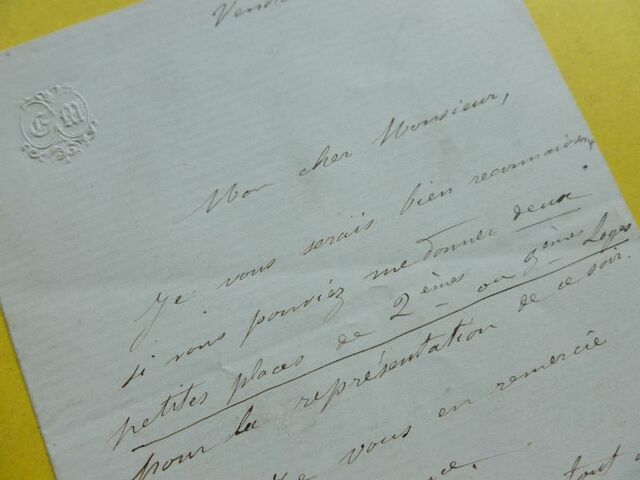 C M
Mon cher Monsieur,
Je vous serais bien reconnaissant
si vous pouviez me donner deux
petites places de 2èmes ou 3èmes Loges
pour la représentation de ce soir.
Je vous en remercie
tout